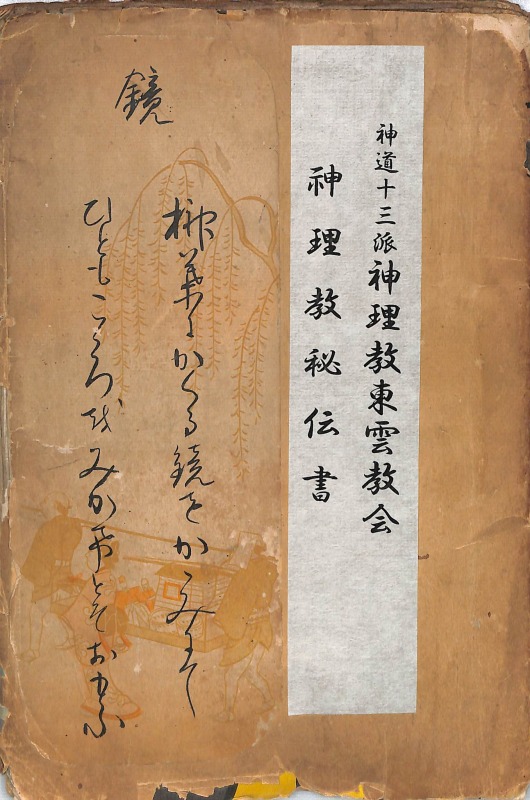 神道十三派神理教東雲教会
神理教秘伝書
鏡
榊葉にかくる鏡をかゝみにて
ひともこゝろをみかけとそおもふ